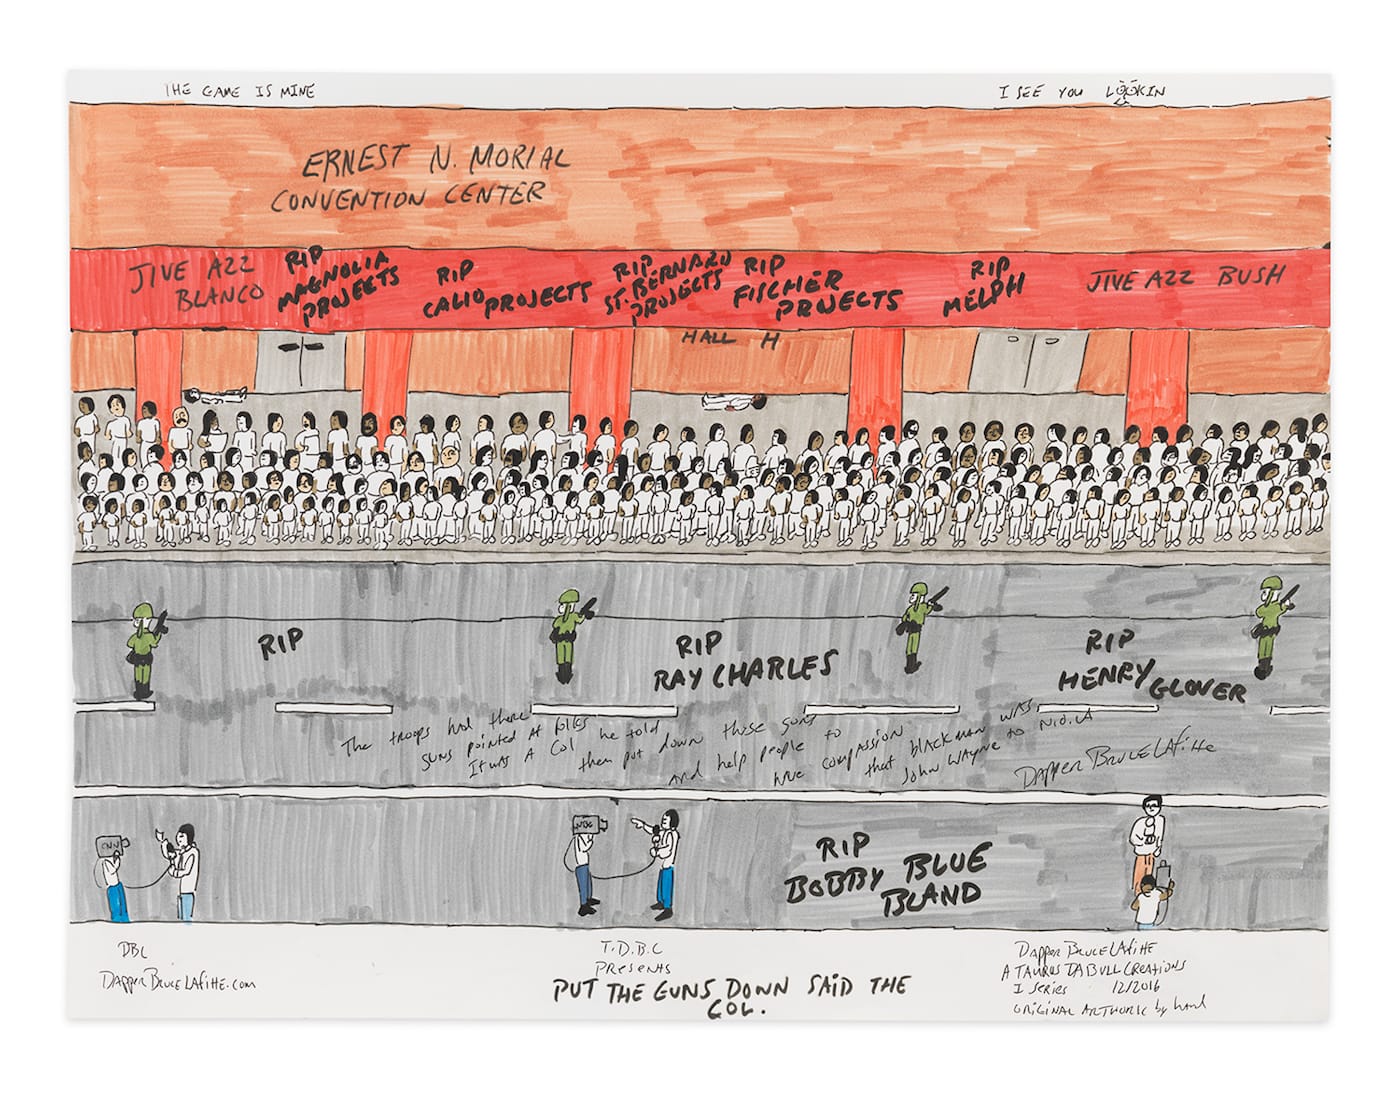 THE GAME IS MINE
I SEE YOU LOOKIN
ERNEST N. MORIAL
CONVENTION CENTER
JIVE AZZ
BLANCO
RIP
MAGNOLIA
PROJECTS
RIP
CALIO PROJECTS
RIP
ST. BERNARD
PROJECTS
RIP
FISCHER
PROJECTS
RIP
MELPH
JIVE AZZ BUSH
HALL H
RIP
RIP
RAY CHARLES
RIP
HENRY
GLOVER
The troops had there
guns pointed at folks
It was A Col he told
them put down those guns
and help people to
have compassion
that black man was
John Wayne to N.O. LA
Dapper Bruce Lafitte
CNN
NBC
RIP
BOBBY BLUE
BLAND
DBL
Dapper Bruce Lafitte.com
T.D.B.C
Presents
PUT THE GUNS DOWN SAID THE
COL.
Dapper Bruce Lafitte
A TAURUS DA BULL CREATIONS
I Series 12/2016
ORIGINAL ARTWORK by hand